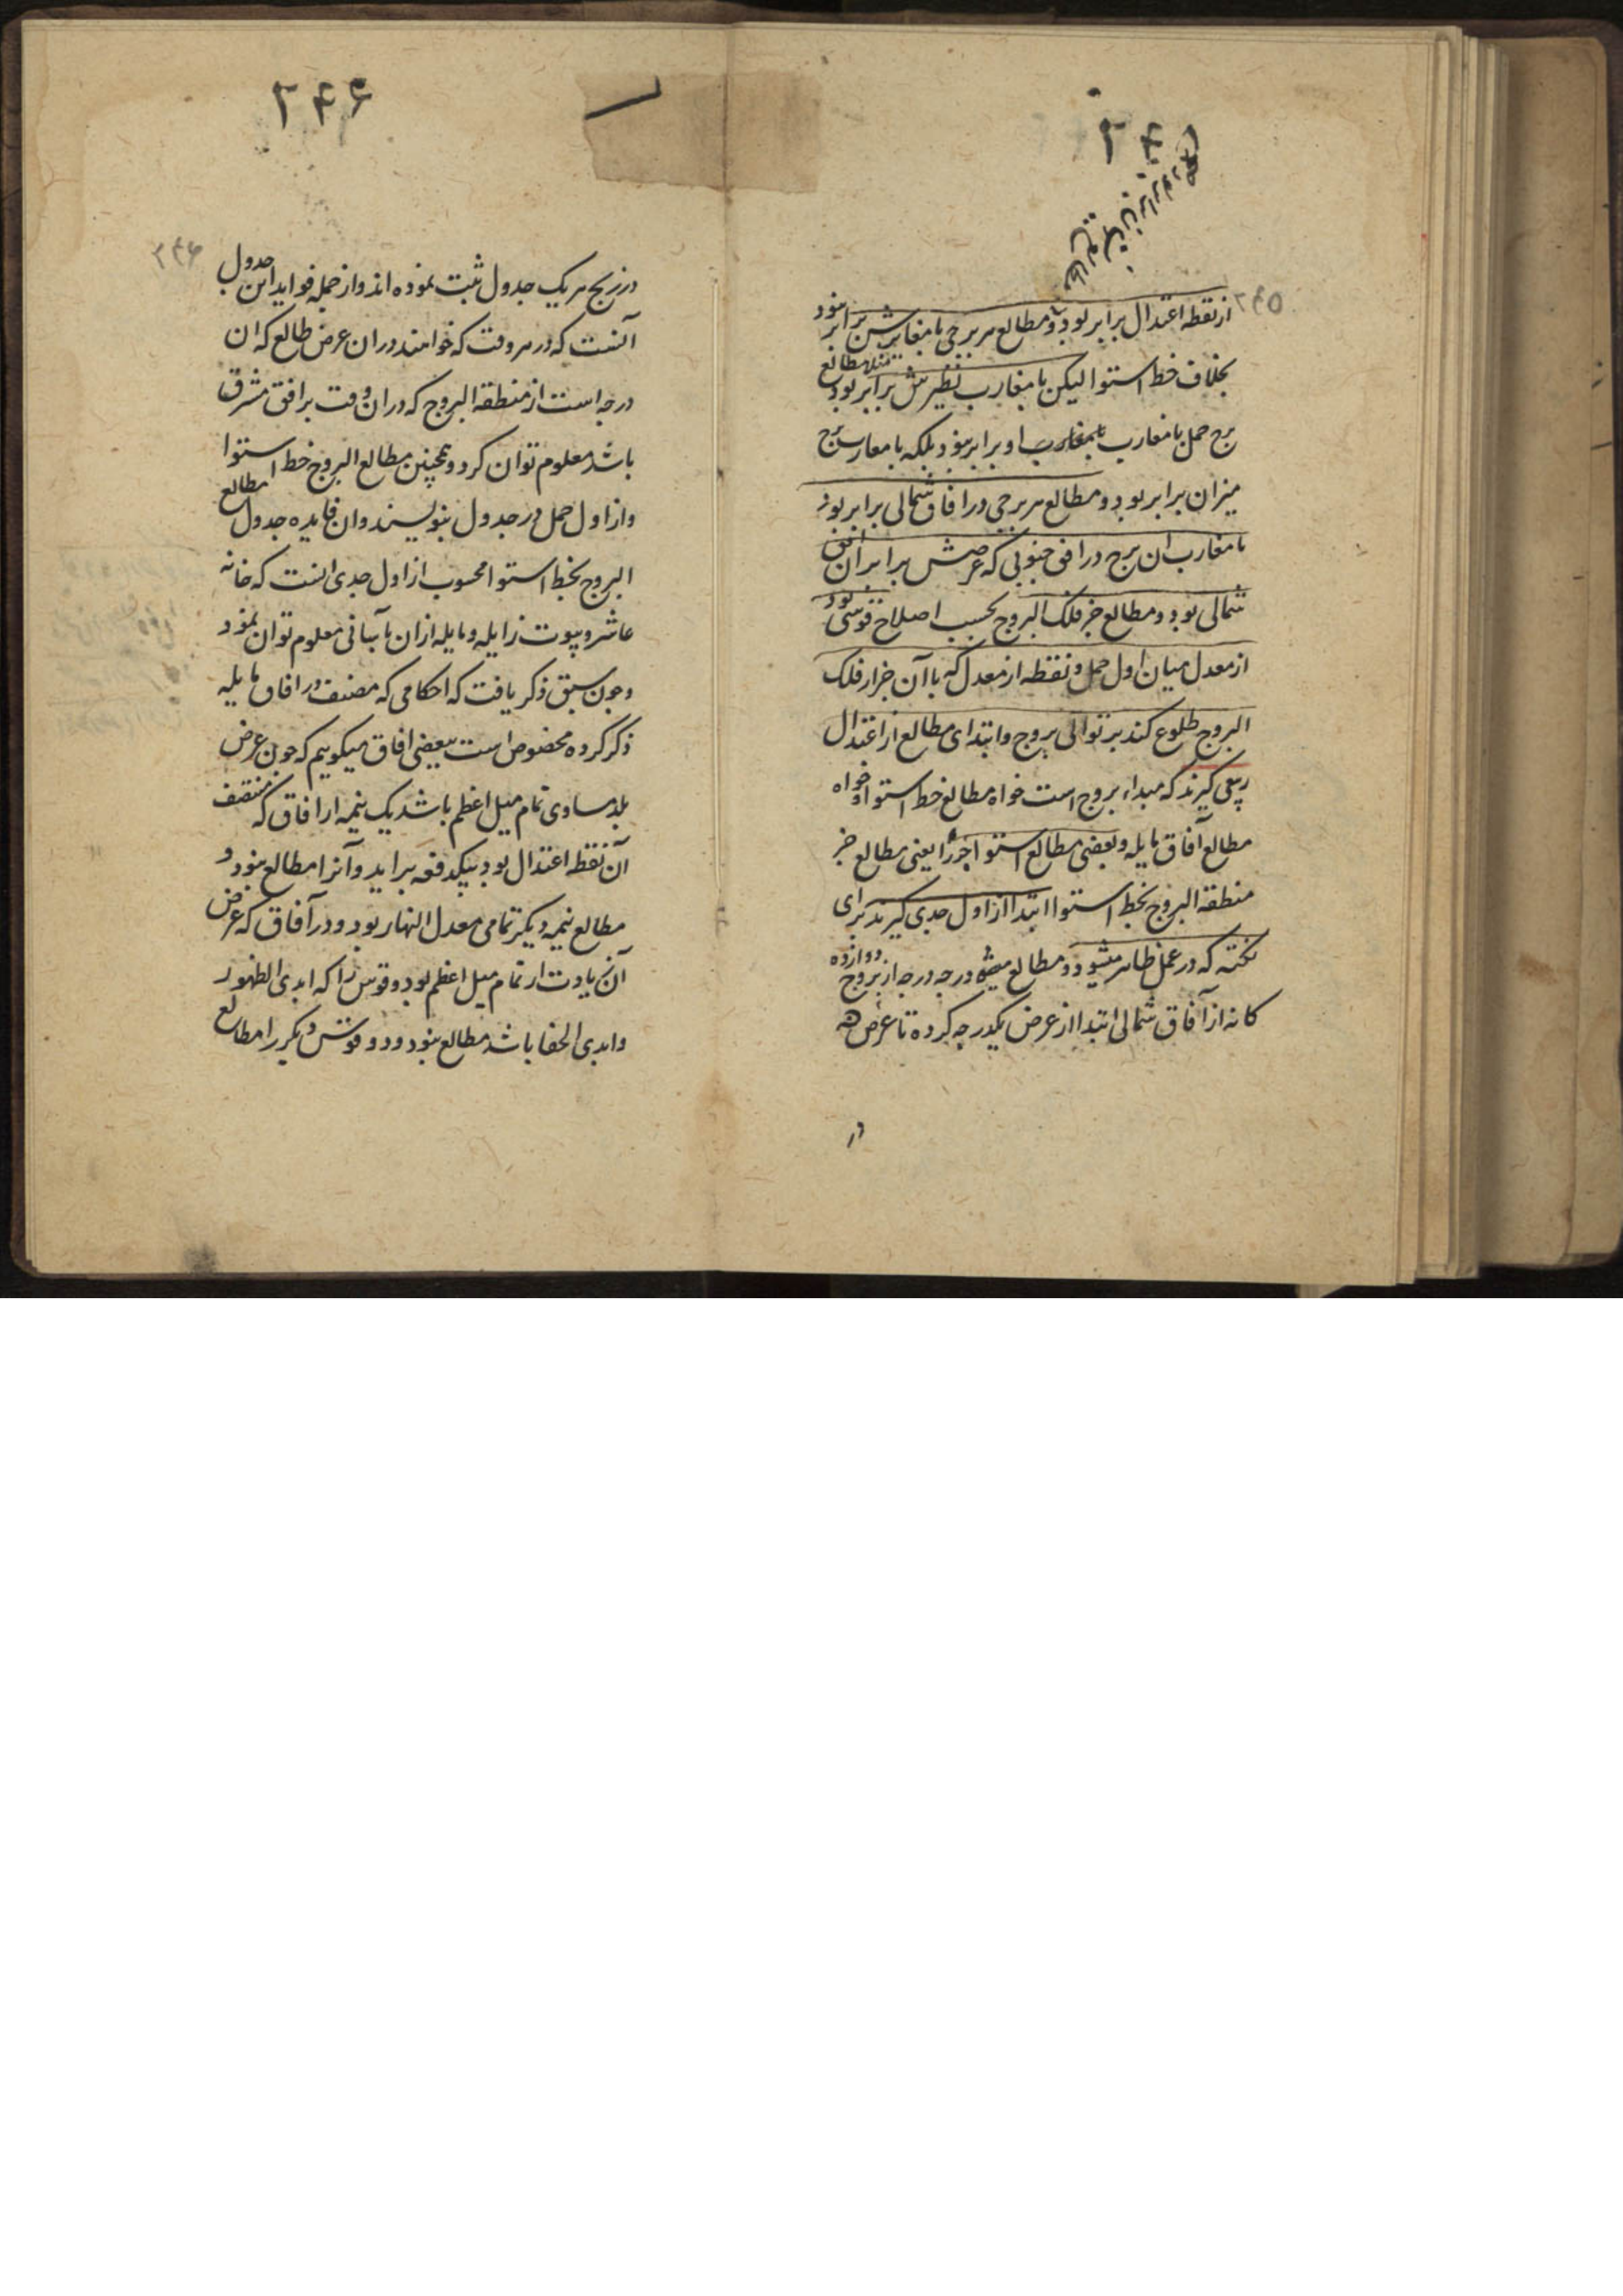 ۲۴۵
از نقطه اعتدال برابر بود و مطالع هر برجی با مغاربش برابر نبود
بخلاف خط استوا لیکن با مغارب نظیرش برابر بود مثلا مطالع
برج حمل با مغارب او برابر نبود بلکه با مغارب برج
میزان برابر بود و مطالع هر برجی در افاق شمالی برابر بود
با مغارب ان برج در افق جنوبی که عرضش برابر آن افق
شمالی بود و مطالع جزء فلک البروج بحسب اصلاح قوسی بود
از معدل میان اول حمل و نقطه از معدل که با آن جزء از فلک
البروج طلوع کند بر توالی بروج و ابتدای مطالع از اعتدال
ربیعی گیرند که مبداء بروج است خواه مطالع خط استوا و خواه
مطالع آفاق مایله و بعضی مطالع استوا جزء را یعنی مطالع جزء
منطقة البروج بخط استوا ابتدا از اول جدی گیرند برای
نکته که در عمل ظاهر میشود و مطالع درجه درجه از بروج دوازده
کانه از آفاق شمالی ابتدا از عرض یکدرجه کرده تا عرض
در
۲۴۶
۲۴۶
در زیج هر یک جدول ثبت نموده اند و از جمله فواید این جدول
آنست که در هر وقت که خواهند در ان عرض طالع که ان
درجه است از منطقة البروج که در ان وقت بر افق مشرق
باشد معلوم توان کرد و همچنین مطالع البروج خط استوا
را از اول حمل در جدول بنویسند و ان فایده جدول مطالع
البروج بخط استوا محسوب از اول جدی انست که خانه
عاشر و بیوت زایله و مایله از ان بآسانی معلوم توان نمود
و چون سبق ذکر یافت که احکامی که مصنف در افاق مایله
ذکر کرده مخصوص است ببعضی افاق میگوییم که چون عرض
بلد مساوی تمام میل اعظم باشد یک نیمه از افاق که منتصف
آن نقطه اعتدال بود بیکدفعه براید و آنرا مطالع نبود و
مطالع نیمه دیگر تمامی معدل النهار بود و در آفاق که عرض
آن زیادت از تمام میل اعظم بود دو قوس را که ابدی الظهور
و ابدی الخفا باشد مطالع نبود و دو قوس دیگر را مطالع